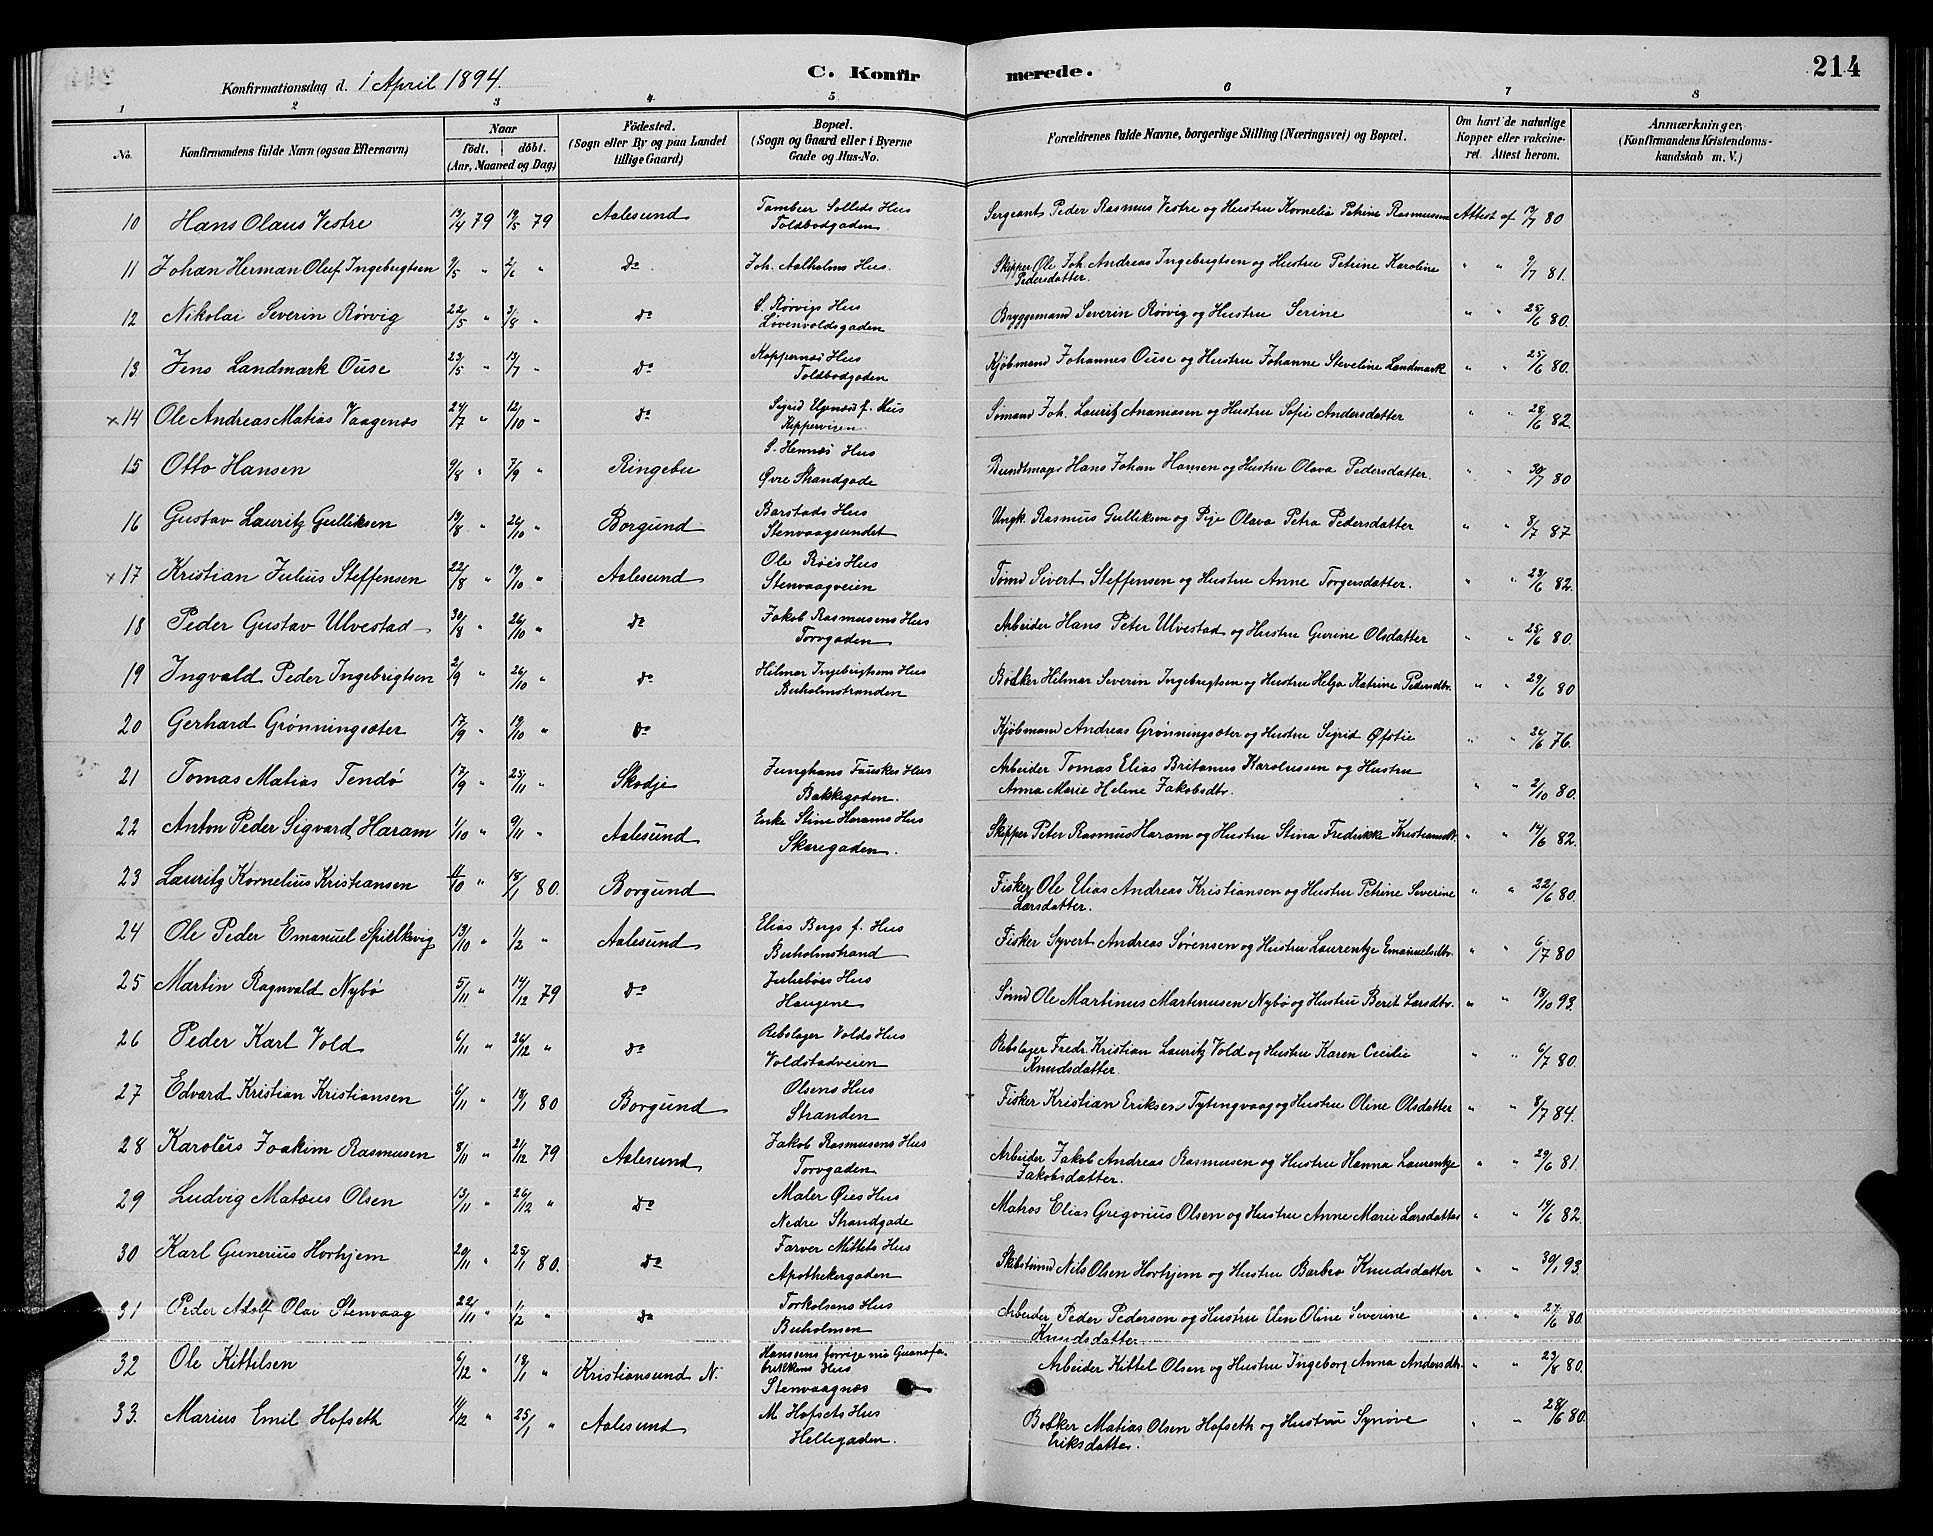 C. Konfirmerede.
214
Konfirmationsdag d. 1 April 1894.
1 2 3 4 5 6 7 8
No. Konfirmandens fulde Navn (ogsaa Efternavn) Naar födt. döbt. (Aar, Maaned og Dag) Födested. (Sogn eller By og paa Landet tillige Gaard) Bopæl. (Sogn og Gaard eller i Byerne Gade og Hus-No. Forældrenes fulde Navne, borgerlige Stilling (Næringsvei) og Bopæl. Om havt de naturlige Kopper eller vakcineret. Attest herom. Anmærkninger. (Konfirmandens Kristendomskundskab m. V.)
10 Hans Olaus Vestre 19/4 79 19/5 79 Aalesund Tambur Sollids Hus Toldbodgaden Sergeant Peder Rasmus Vestre og Hustru Kornelia Petrine Rasmussen Attest af 80
11 Johan Herman Oluf Ingebrigtsen 9/5 " 2/6 " Do Joh. Aalholms Hus. Skipper Ole Joh. Andreas Ingebrigtsen og Hustru Petrine Karoline Pedersdatter. " " 9/7 81.
12 Nikolai Severin Rörvig 22/5 " 3/8 " Do S. Rörvigs Hus Løvenvoldsgaden Bryggemand Severin Rörvig og Hustru Serine " " 25/6 80.
13 Jens Landmark Ouse 23/5 " 13/7 " Do Koppernæs Hus Toldbodgaden Kjöbmand Johannes Ouse og Hustru Johanne Steveline Landmark " " 25/6 80.
x 14 Ole Andreas Matias Vaagenæs 24/7 " 12/10 " Do Sigrid f. Hus Kippervigen Sömand Joh. Lauritz Ananiasen og Hustru Sofie Andersdatter " " 28/6 82
15 Otto Hansen 9/8 " 7/9 " Ringebu S. Hennøs Hus Øvre Strandgade Bundtmager Hans Johan Hansen og Hustru Olava Pedersdatter. " " 30/7 80
16 Gustav Lauritz Gulliksen 19/8 " 26/10 " Borgund Barstads Hus Stenvaagsundet Ungk. Rasmus Gulliksen og Pige Olava Petra Pedersdatter " " 8/7 87
x 17 Kristian Julius Steffensen 22/8 " 19/10 " Aalesund Ole Röes Hus Stenvaagveien Tömd Sivert Steffensen og Hustru Anne Torgersdatter. " " 23/6 82.
18 Peder Gustav Ulvestad 30/8 " 26/10 " Do Jakob Rasmusens Hus Torvgaden Arbeider Hans Peter Ulvestad og Hustru Gurine Olsdatter " " 25/6 80.
19 Ingvald Peder Ingebrigtsen 2/9 " 26/10 " Do Hilmar Ingebrigtsens Hus Buholmstranden Bödker Hilmar Severin Ingebrigtsen og Hustru Helga Katrine Pedersdtr. " " 29/6 80
20 Gerhard Grönningsæter 17/9 " 19/10 " Do Kjöbmand Andreas Grönningsæter og Hustru Sigrid Øfstie " " 24/6 76.
21 Tomas Matias Tendö 17/9 " 23/11 " Skodje Junghans Fauskes Hus Bakkegaden. Arbeider Tomas Elias Britanus Karolussen og Hustru Anna Marie Helene Jakobsdtr. " " 2/10 80.
22 Anton Peder Sigvard Haram 1/10 " 9/11 " Aalesund Enke Stine Harams Hus Skaregaden. Skipper Peter Rasmus Haram og Hustru Stina Fredrikke Kristiansdtr. " " 14/6 82.
23 Lauritz Kornelius Kristiansen 11/10 " 18/1 80. Borgund Fisker Ole Elias Andreas Kristiansen og Hustru Petrine Severine Larsdatter. " " 22/6 80.
24 Ole Peder Emanuel Spielkvig 13/10 " 1/2 " Aalesund Elias Borgs f. Hus Buholmstrand Fisker Syvert Andreas Sørensen og Hustru Laurentze Emanuelsdtr. " " 6/7 80
25 Martin Ragnvald Nybø 5/11 " 14/12 79 Do Juliebøes Hus Haugene Sömd Ole Martinus Martinusen Nybø og Hustru Berit Larsdtr. " " 18/10 93.
26 Peder Karl Vold 6/11 " 26/12 " Do Rebslager Volds Hus Voldstadveien Rebslager Fredr. Kristian Lauritz Vold og Hustru Karen Cecilie Knudsdatter. " " 6/7 80.
27 Edvard Kristian Kristiansen 6/11 " 18/1 80 Borgund Olsens Hus Stranden Fisker Kristian Eriksen Tytingvaag og Hustru Oline Olsdatter " " 8/7 84.
28 Karolus Joakim Rasmusen 8/11 " 21/12 79 Aalesund Jakob Rasmusens Hus Torvgaden Arbeider Jakob Andreas Rasmusen og Hustru Hanna Laurentze Jakobsdatter. " " 29/6 81.
29 Ludvig Matæus Olsen 13/11 " 26/12 " Do Maler Øies Hus Nedre Strandgade Matros Elias Gregorius Olsen og Hustru Anne Marie Larsdatter " " 14/6 82.
30 Karl Gunerius Horhjem 20/11 " 25/1 80. Do Farver Mittets Hus Apothekergaden Skibstömd Nils Olsen Horhjem og Hustru Barbro Knudsdatter " " 30/1 93.
31 Peder Adolf Olai Stenvaag 22/11 " 1/2 " Do Torkelsens Hus Buholmen Arbeider Peder Pedersen og Hustru Elen Oline Severine Knudsdatter " " 27/6 80.
32 Ole Kittilsen 6/12 " 18/1 " Kristiansund N. Hansens forrige nu Guanofabrikkens Hus Stenvaagnæs Arbeider Kittel Olsen og Hustru Ingeborg Anna Andersdtr. " " 23/8 80.
33. Marius Emil Hofseth 11/12 " 25/1 " Aalesund M Hofsets Hus Hellegaden. Bödker Matias Olsen Hofseth og Hustru Synöve Eriksdatter. " " 28/6 80.